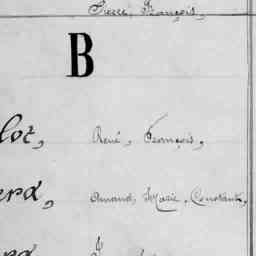 Pierre, François,
B
lot, René, François,
erd, Armand, Marie, Constant,